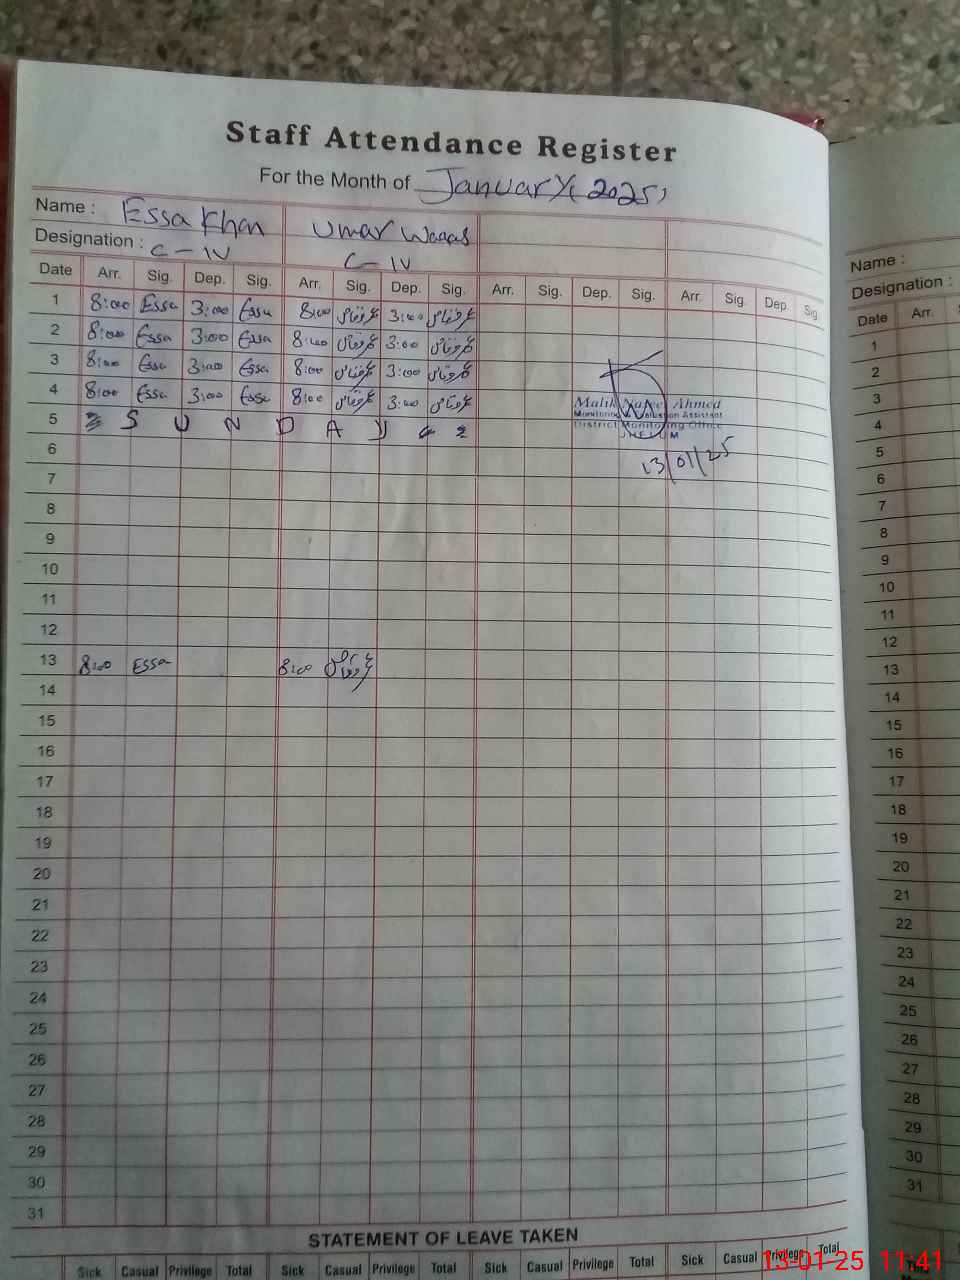 Staff Attendance Register
For the Month of January, 2025,
Name : Essa Khan Umar Waqas
Designation : C-IV C-IV
Date Arr. Sig. Dep. Sig. Arr. Sig. Dep. Sig. Arr. Sig. Dep. Sig. Arr. Sig. Dep. Sig.
1 8:00 Essa 3:00 Essa 8:00 عمر وقاص 3:00 عمر وقاص
2 8:00 Essa 3:00 Essa 8:00 عمر وقاص 3:00 عمر وقاص
3 8:00 Essa 3:00 Essa 8:00 عمر وقاص 3:00 عمر وقاص
4 8:00 Essa 3:00 Essa 8:00 عمر وقاص 3:00 عمر وقاص
5 S U N D A Y
Malik Ahmed
Monitoring Evaluation Assistant
District Monitoring Office
JHELUM
13/01/25
6
7
8
9
10
11
12
13 8:00 Essa 8:00 عمر وقاص
14
15
16
17
18
19
20
21
22
23
24
25
26
27
28
29
30
31
STATEMENT OF LEAVE TAKEN
Sick Casual Privilege Total Sick Casual Privilege Total Sick Casual Privilege Total Sick Casual Privilege Total
Name :
Designation :
Date Arr.
1
2
3
4
5
6
7
8
9
10
11
12
13
14
15
16
17
18
19
20
21
22
23
24
25
26
27
28
29
30
31
13-01-25 11:41